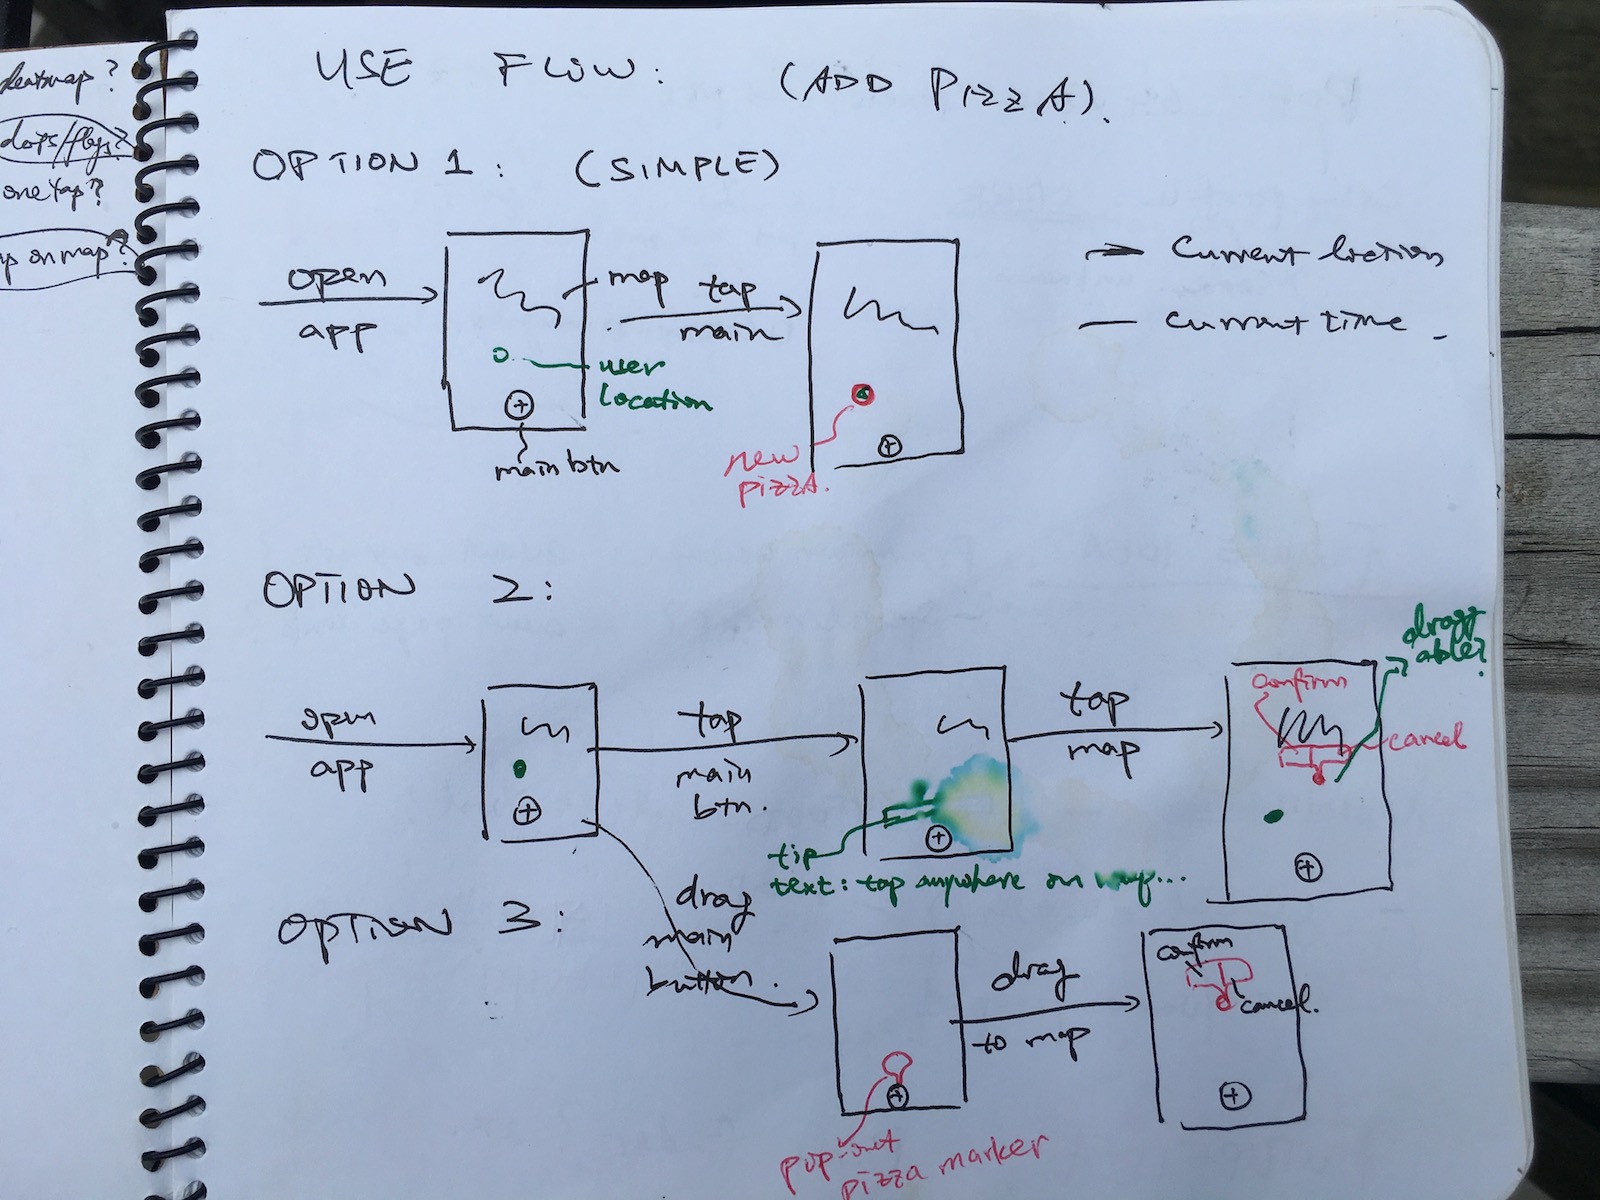 heatmap?
dots/flags?
one tap?
on map?
USE FLOW: (ADD PIZZA).
OPTION 1: (SIMPLE)
open
app
map
user
location
main btn
tap
main
new
pizza.
current location
current time
OPTION 2:
open
app
tap
main
btn.
tip
text: tap anywhere on map...
tap
map
confirm
cancel
dragg
able?
OPTION 3:
drag
main
button.
pop-out
pizza marker
drag
to map
confirm
cancel.